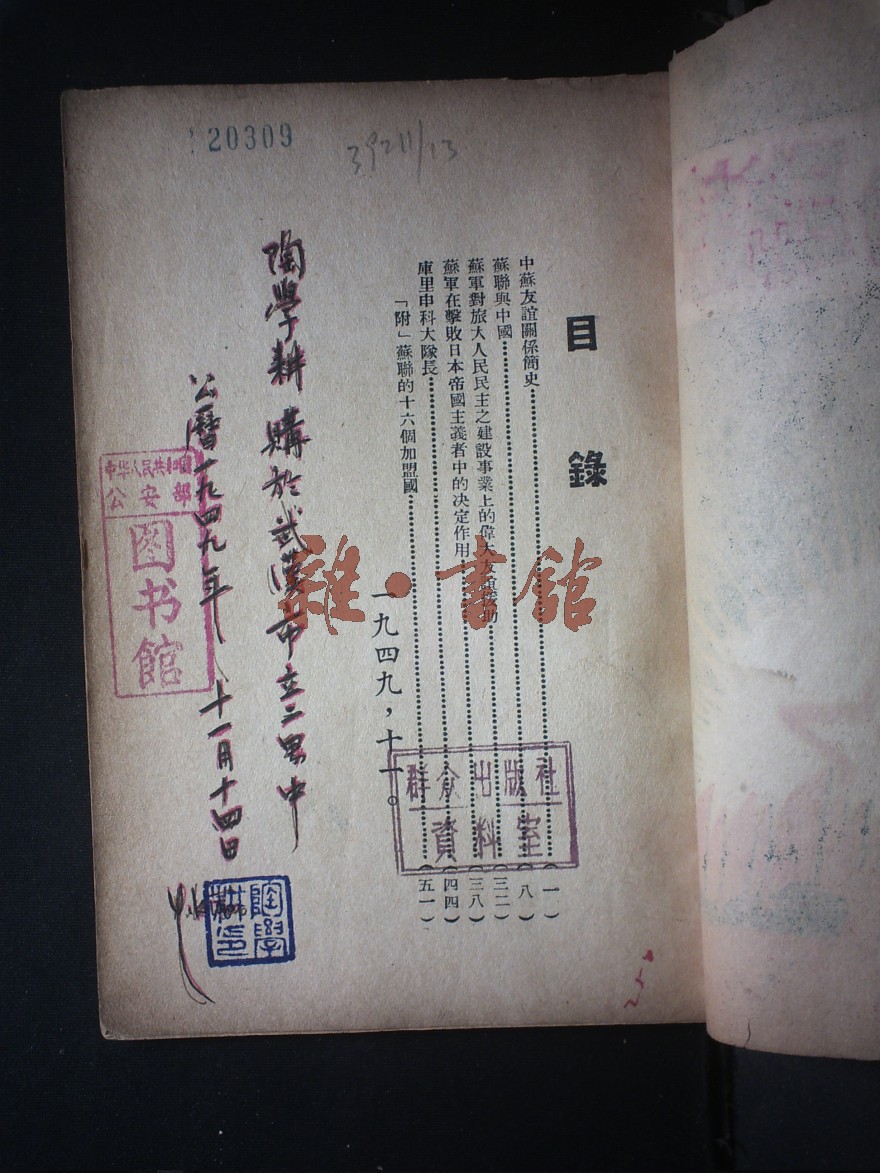 20309
39211/13
目錄
中蘇友誼關係簡史…………(一)
蘇聯與中國…………(八)
蘇軍對旅大人民民主之建設事業上的偉大友誼援助…………(三二)
蘇軍在擊敗日本帝國主義者中的決定作用…………(三八)
庫里申科大隊長…………(四四)
「附」蘇聯的十六個加盟國…………(五一)
一九四九，十一。
群众出版社
資料室
雜·書館
陶學耕 購於武漢市立二男中
公曆一九四九年 十一月十四日
中华人民共和国
公安部
图书馆
陶學耕印